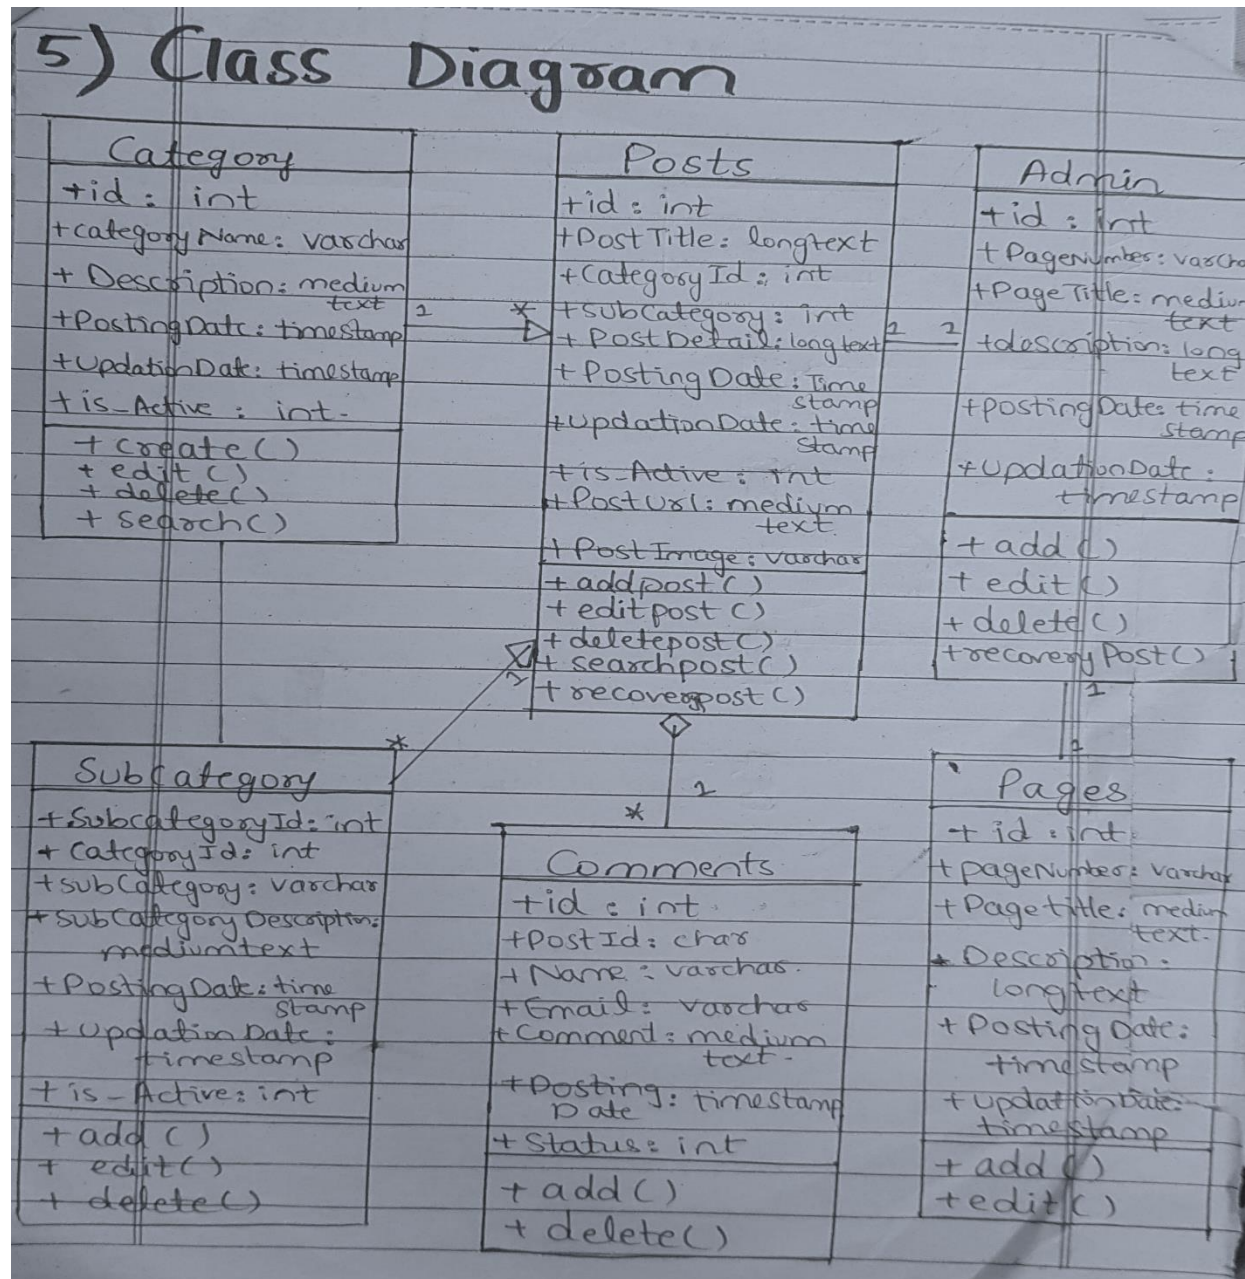 5) Class Diagram
Category
+id : int
+categoryName: varchar
+ Description: medium
text
+PostingDate: timestamp
+UpdationDate: timestamp
+is_Active : int.
+ create()
+ edit()
+ delete()
+ search()
1
*
Posts
+id : int
+PostTitle: longtext
+CategoryId : int
+SubCategory: int
+ PostDetail: longtext
+ PostingDate: Time
stamp
+UpdationDate: time
stamp
+is_Active : int
+PostUrl: medium
text
+PostImage: varchar
+addpost()
+editpost()
+deletepost()
+ searchpost()
+recoverpost()
1 1
Admin
+id : int
+PageNumber: varcha
+PageTitle: medium
text
+description: long
text
+postingDate: time
stamp
+UpdationDate :
timestamp
+ add()
+ edit()
+ delete()
+recoveryPost()
*
1
1
*
1
1
SubCategory
+SubcategoryId: int
+ CategoryId: int
+subCategory: varchar
+subCategory Description:
mediumtext
+PostingDate: time
stamp
+Updation Date:
timestamp
+is_Active: int
+add ()
+ edit()
+ delete()
Comments
+id : int
+PostId: char
+Name : varchar.
+Email: varchar
+Comment: medium
text.
+Posting : timestamp
Date
+Status: int
+ add()
+ delete()
Pages
+ id : int
+pageNumber: varchar
+Pagetitle: medium
text.
+ Description:
longtext
+Posting Date:
timestamp
+UpdationDate:
timestamp
+add()
+edit()